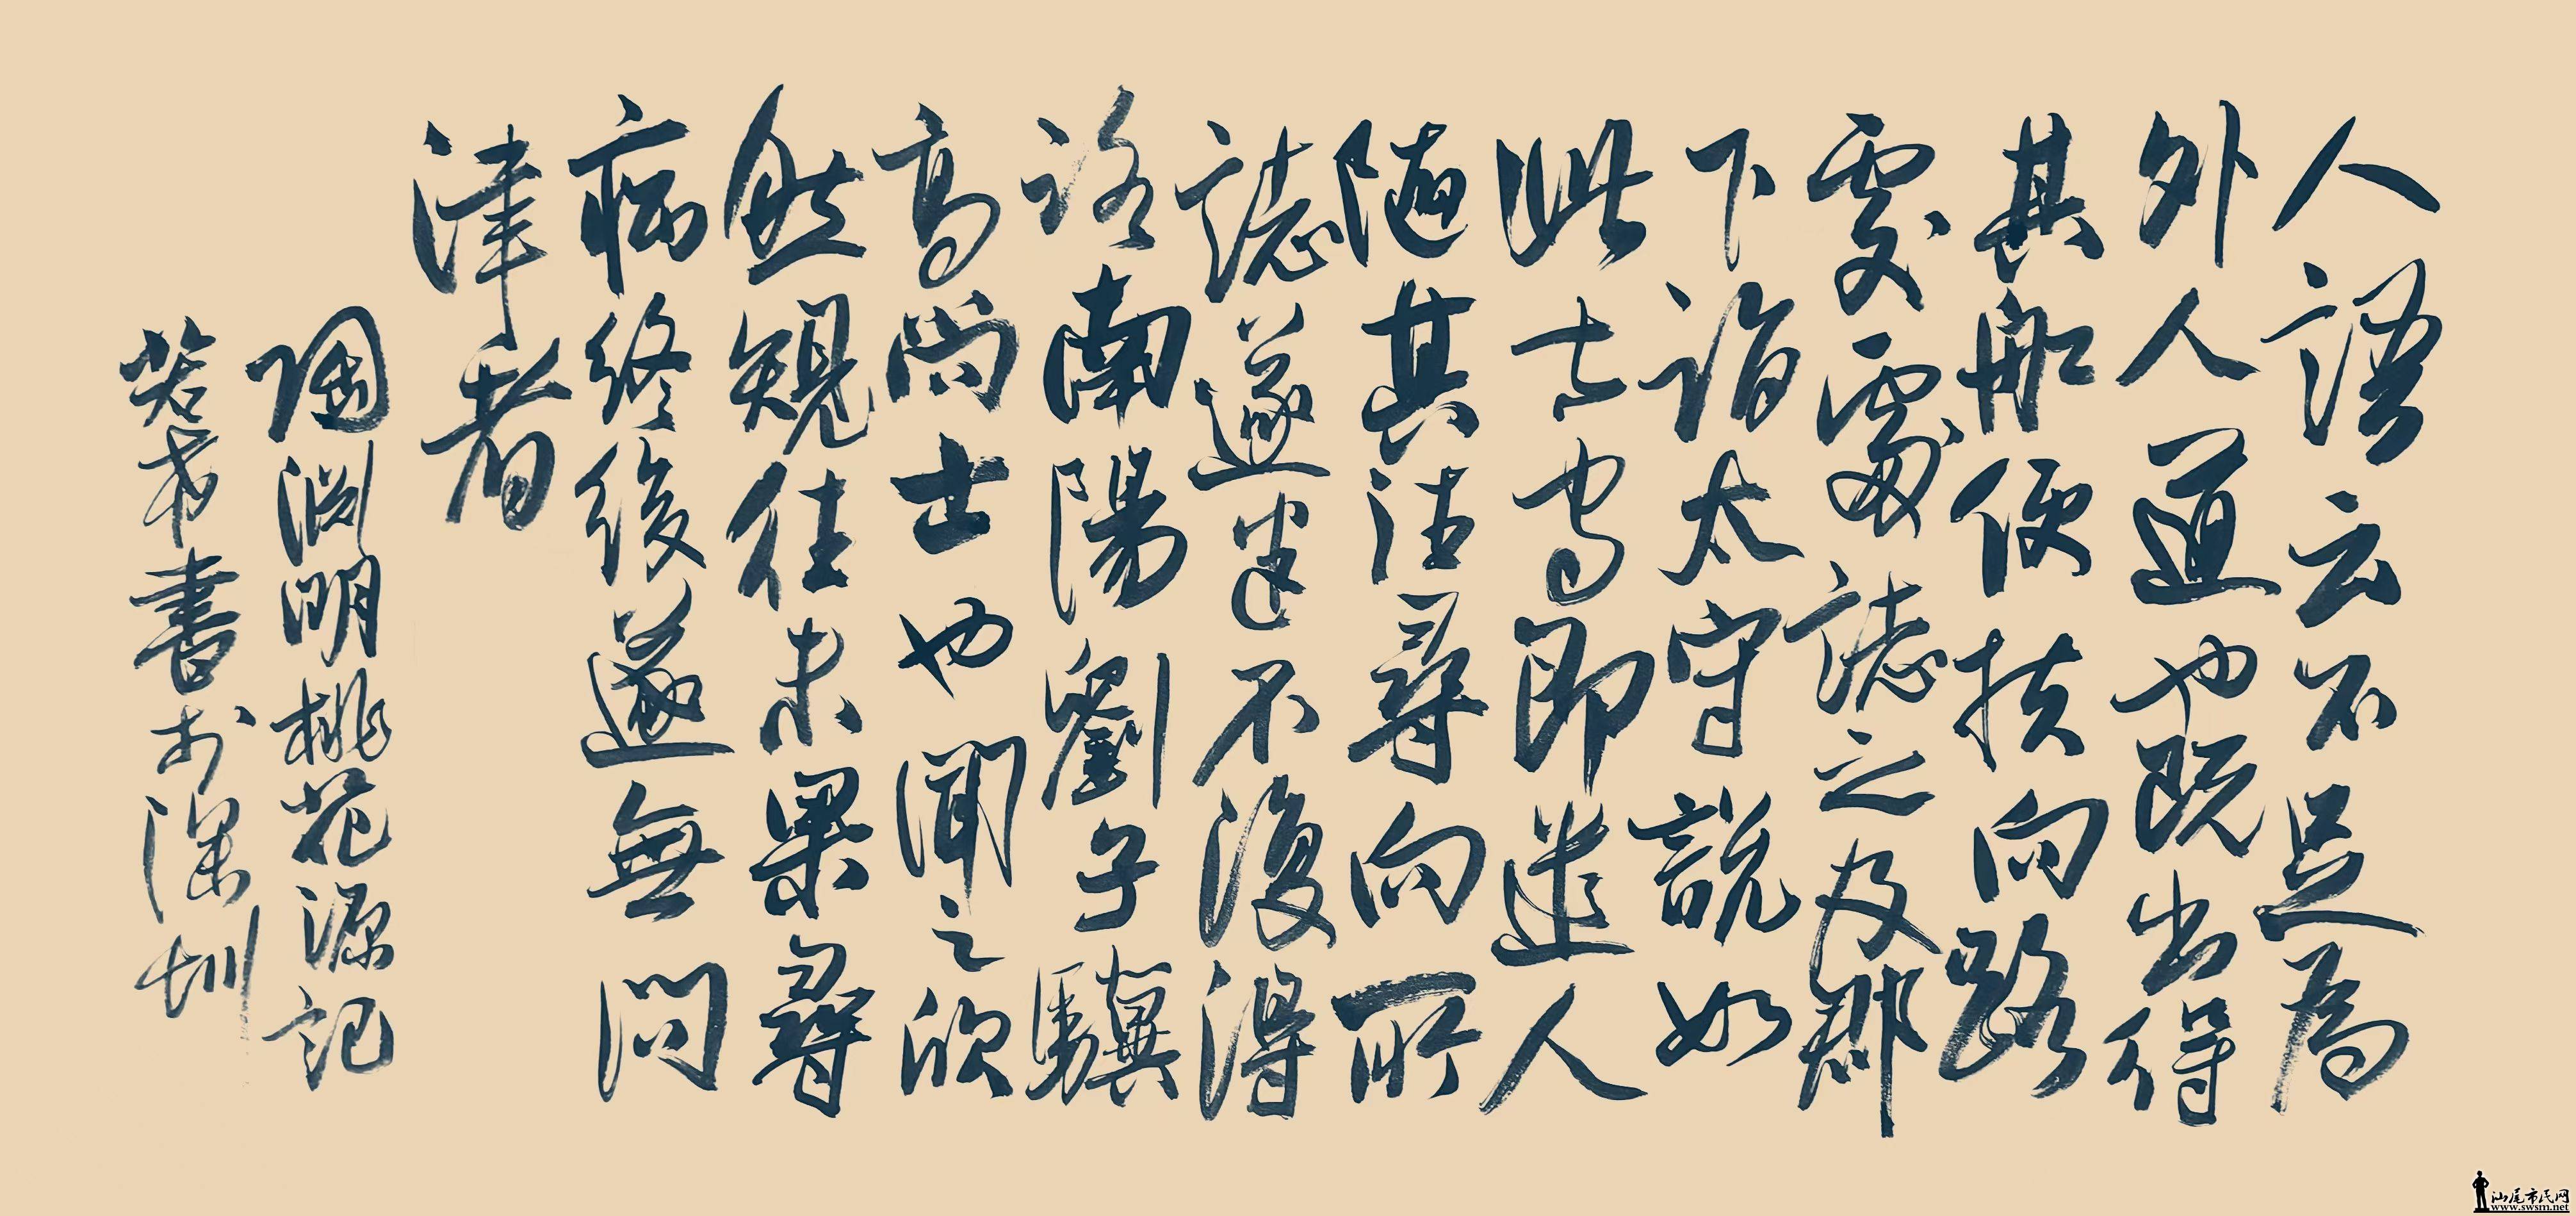 人語云不足為
外人道也既出得
其船便扶向路
處處誌之及郡
下詣太守說如
此太守即遣人
隨其往尋向所
誌遂迷不復得
路南陽劉子驥
高尚士也聞之欣
然規往未果尋
病終後遂無問
津者
陶淵明桃花源記
書於深圳
汕尾市民网
www.swsm.net